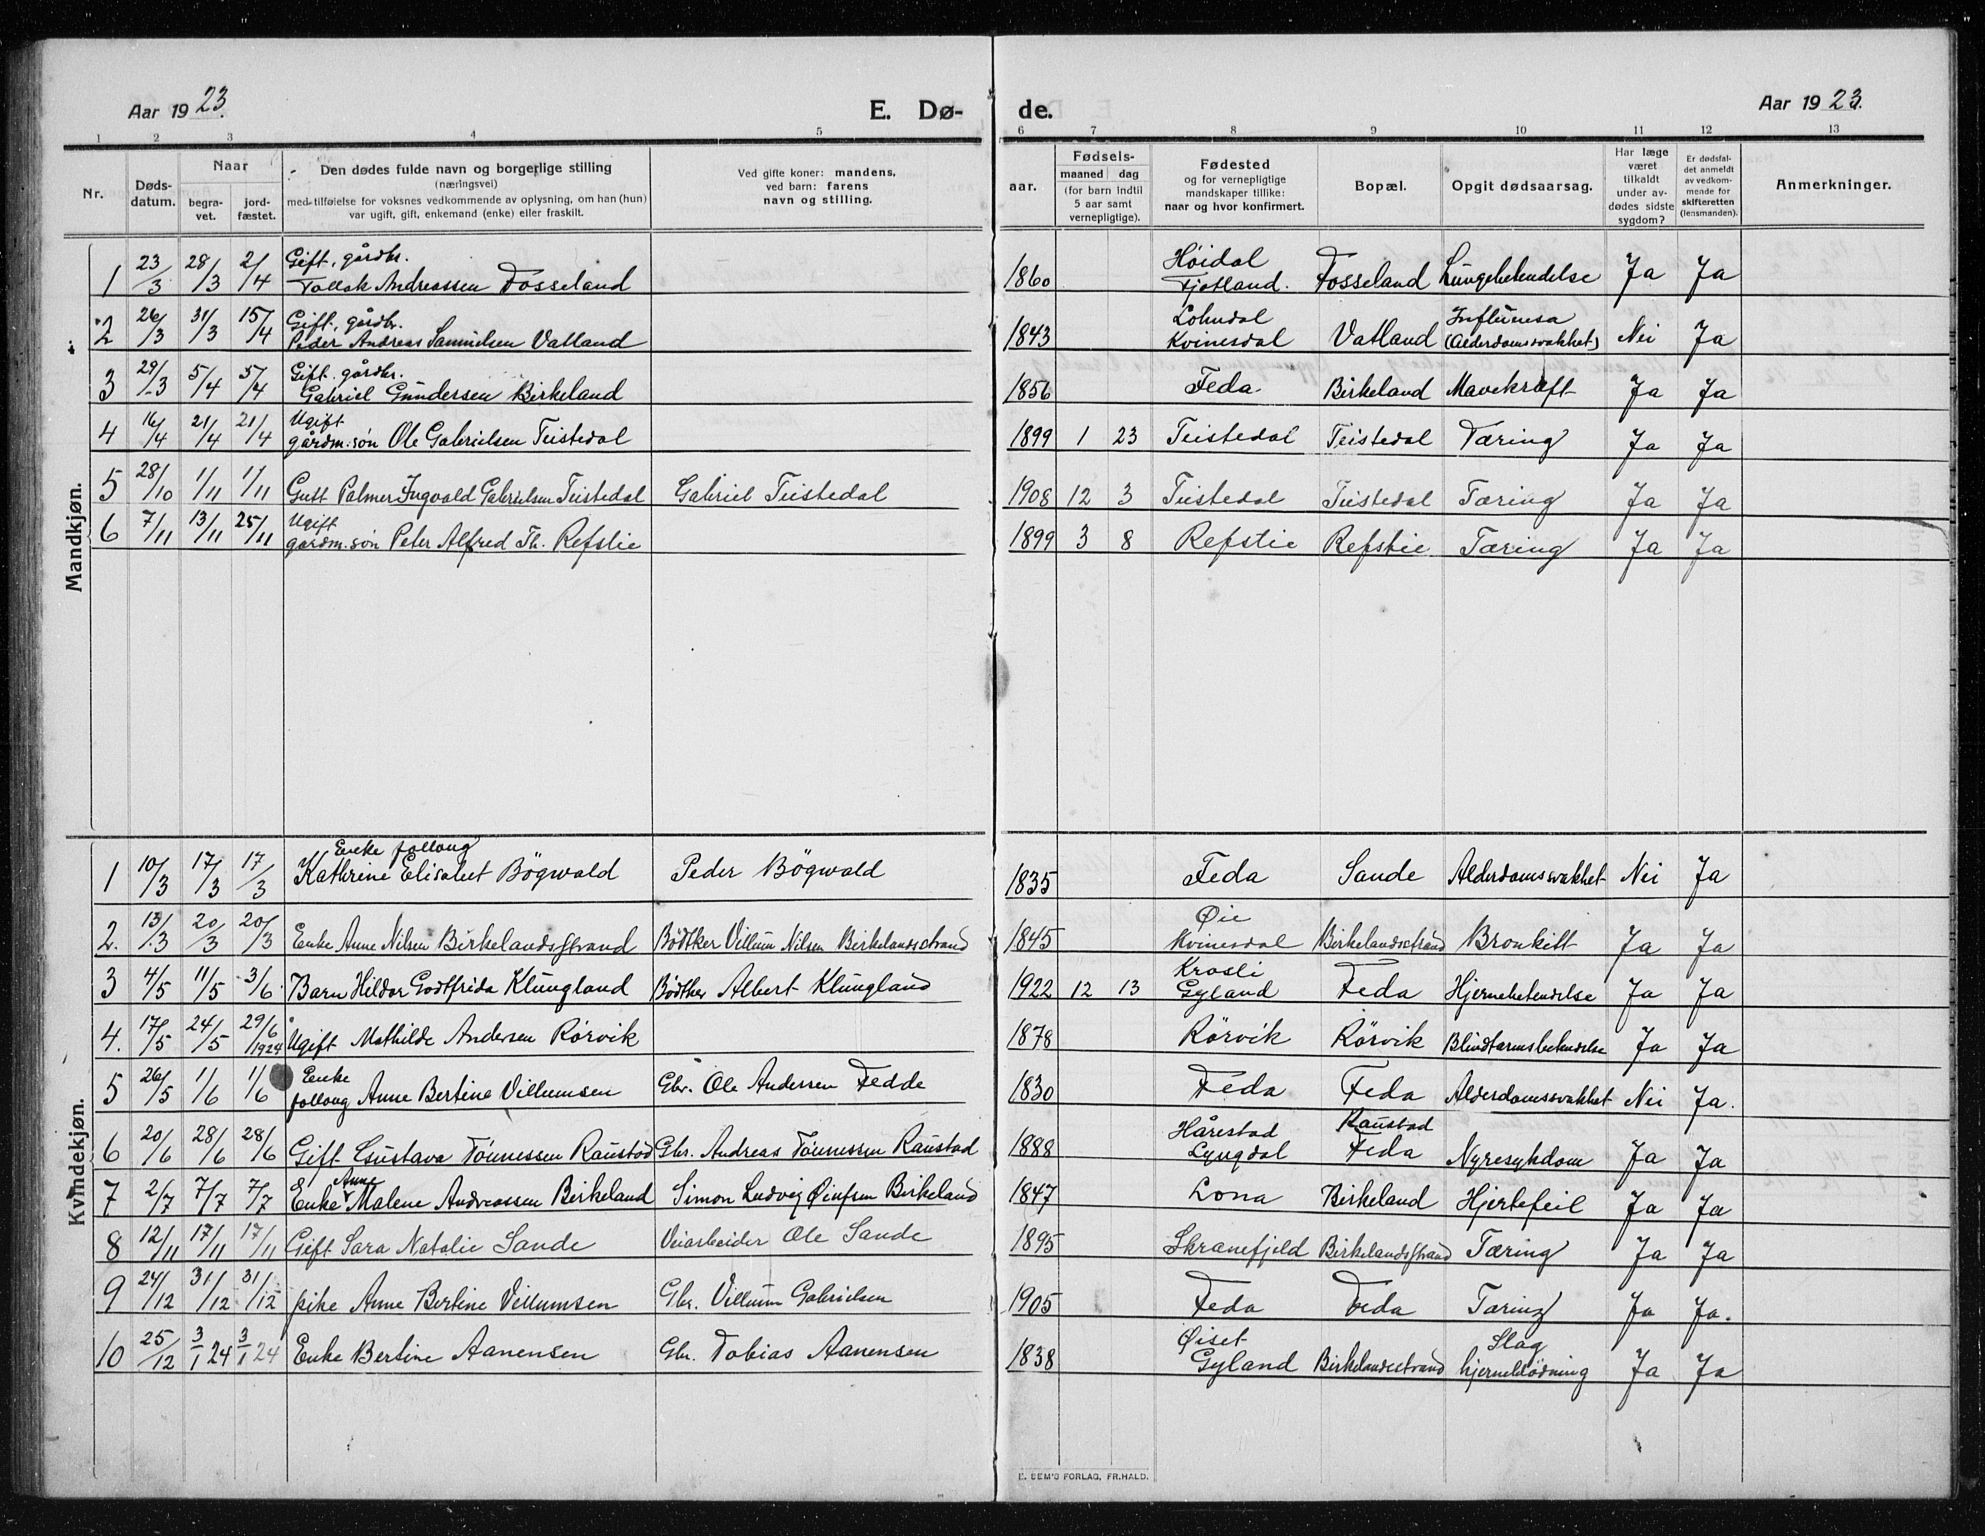 Aar 1923. E. Dø-
1 2 3 4 5
Nr. Dødsdatum. Naar begravet. jordfæstet. Den dødes fulde navn og borgerlige stilling (næringsvei) med tilføielse for voksnes vedkommende av oplysning, om han (hun) var ugift, gift, enkemand (enke) eller fraskilt. Ved gifte koner: mandens, ved barn: farens navn og stilling.
de. Aar 1923.
6 7 8 9 10 11 12 13
aar. Fødsels- maaned dag (for barn indtil 5 aar samt vernepligtige). Fødested og for vernepligtige mandskaper tillike: naar og hvor konfirmert. Bopæl. Opgit dødsaarsag. Har læge været tilkaldt under avdødes sidste sygdom? Er dødsfaldet anmeldt av vedkommende for skifteretten (lensmanden). Anmerkninger.
Mandkjøn.
1 23/3 28/3 2/4 Gift, gårdbr. Tollak Andreassen Fosseland 1860 Høidal Fjotland. Fosseland Lungebetendelse Ja Ja
2 26/3 31/3 15/4 Gift, gårdbr. Peder Andreas Samuelsen Vatland 1843 Lohndal Kvinesdal Vatland Influensa (Alderdomssvakhet) Nei Ja
3 29/3 5/4 5/4 Gift. gårdbr. Gabriel Gundersen Birkeland 1856 Feda. Birkeland Mavekræft Ja Ja
4 16/4 21/4 21/4 Ugift gårdm. søn Ole Gabrielsen Teistedal 1899 1 23 Teistedal Teistedal Tæring Ja Ja
5 28/10 1/11 1/11 Gutt Palmer Ingvald Gabrielsen Teistedal Gabriel Teistedal 1908 12 3 Teistedal Teistedal Tæring Ja Ja
6 7/11 13/11 25/11 Ugift gårdm. søn Peter Alfred Th. Refstie 1899 3 8 Refstie Refstie Tæring Ja Ja
Kvindekjøn.
1 10/3 17/3 17/3 Enke follaug Kathrine Elisabet Bögwald Peder Bögwald 1835 Feda Sande Alderdomssvakhet Nei Ja
2. 13/3 20/3 20/3 Enke Anne Nilsen Birkelandsstrand Bödtker Villum Nilsen Birkelandsstrand 1845 Øie Kvinesdal Birkelandsstrand Bronkitt Ja Ja
3 4/5 11/5 3/6 Barn Hildor Godtfrida Klungland Bödtker Albert Klungland 1922 12 13 Krosli Gyland Feda Hjernebetendelse Ja Ja
4. 17/5 24/5 29/6 1924 Ugift Mathilde Andersen Rörvik 1878 Rörvik Rörvik Blindtarmsbetendelse Ja Ja
5 26/5 1/6 1/6 Enke follaug Anne Bertine Villumsen Gbr. Ole Andersen Fedde 1830 Feda Feda Alderdomssvakhet Nei Ja.
6 20/6 28/6 28/6 Gift Gustava Tönnessen Raustad Gbr. Andreas Tönnessen Raustad 1888 Hårestad Lyngdal Raustad Feda Nyresykdom Ja Ja
7 2/7 7/7 7/7 Enke Anne Malene Andreassen Birkeland Simon Ludvig Øinfsen Birkeland 1847 Lona Birkeland Hjertefeil Ja Ja
8 12/11 17/11 17/11 Gift Sara Natalie Sande Veiarbeider Ole Sande 1895 Skranefjeld Birkelandsstrand Tæring Ja Ja
9 24/12 31/12 31/12 pike Anne Bertine Villumsen Gbr. Villum Gabrielsen 1905 Feda Feda Tæring Ja Ja.
10 25/12 3/1 24 3/1 24 Enke Bertine Aanensen Gbr. Tobias Aanensen 1838 Øiset Gyland Birkelandsstrand Slag hjerneblödning Ja Ja
E. SEM'S FORLAG, FR.HALD.